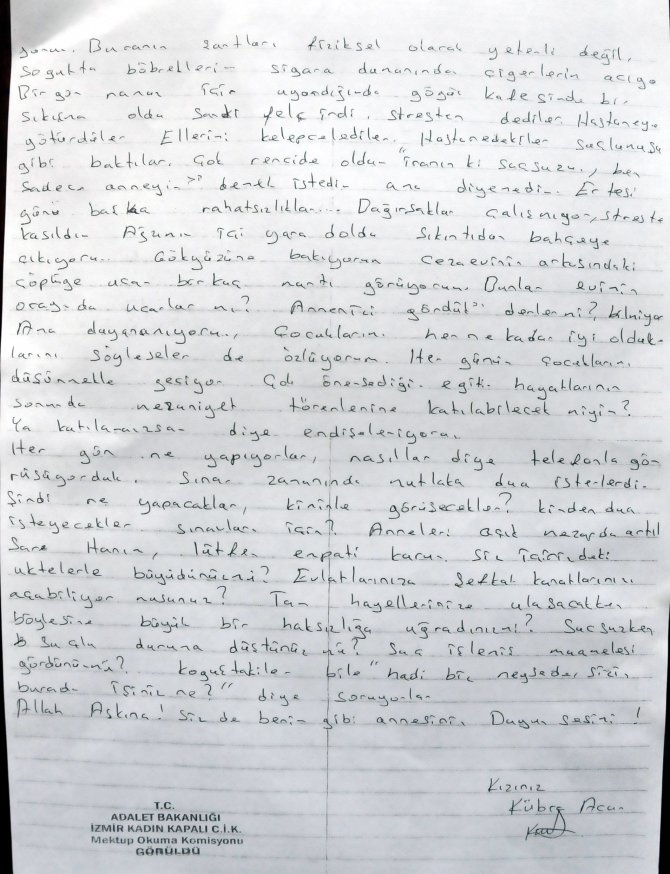 yorum. Buranın şartları fiziksel olarak yeterli değil,
Soğukta böbreklerim sigara dumanından ciğerlerim acıyo
Bir gün namaz için uyandığımda göğüs kafesimde bir
sıkışma oldu sanki felç indi. Stresten dediler. Hastaneye
götürdüler Ellerimi kelepçelediler. Hastanedekiler suçluyuşu
gibi baktılar. Çok rencide oldum "inanın ki suçsuzum, ben
sadece anneyim" demek istedim ama diyemedim. Ertesi
günü başka rahatsızlıklar.... Bağırsaklar çalışmıyor, stresten
kasıldım Ağzımın içi yara doldu sıkıntıdan bahçeye
çıkıyorum. Gökyüzüne bakıyorum cezaevinin arkasındaki
çöplüğe uçan birkaç martı görüyorum. Bunlar evimin
oraya da uçarlar mı? Annenizi gördük" derler mi?, bilmiyor
Ama dayanamıyorum, Çocuklarım her ne kadar iyi olduk-
larını söyleseler de özlüyorum. Her günüm çocuklarımı
düşünmekle geçiyor Çok önemsediğim eğitim hayatlarının
sonunda mezuniyet törenlerine katılabilecek miyim?
Ya katılamazsam diye endişeleniyorum.
Her gün ne yapıyorlar, nasıllar diye telefonla gö-
rüşüyorduk. Sınav zamanında mutlaka dua isterlerdi.
Şimdi ne yapacaklar, kiminle görüşecekler? kimden dua
isteyecekler sınavları için? Anneleri açık mezarda artık
Sare Hanım, lütfen empati kurun siz içinizdeki
uktelerle büyüdünüz mü? Evlatlarınıza şefkat kanatlarınızı
açabiliyor musunuz? Tam hayellerinize ulaşacakken
böylesine büyük bir haksızlığa uğradınız mı? Suçsuzken
suçlu duruma düştünüz mü? Suç işlemiş muamelesi
gördünüz mü? Koğuştakiler bile "hadi biz neyse de sizin
burada işiniz ne?" diye soruyorlar
Allah Aşkına! siz de benim gibi annesiniz. Duyun sesimi!
Kızınız
Kübra Acun
T.C.
ADALET BAKANLIĞI
İZMİR KADIN KAPALI C.İ.K.
Mektup Okuma Komisyonu
GÖRÜLDÜ